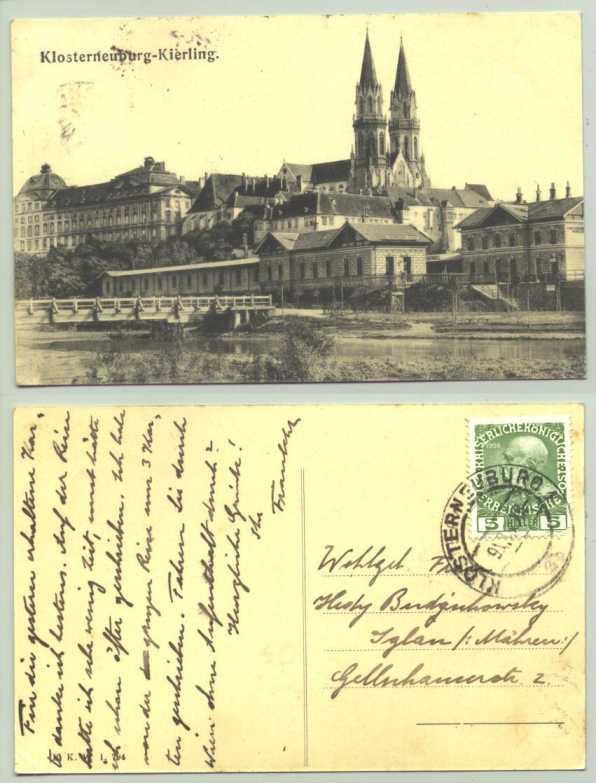 Klosterneuburg-Kierling.
Für die gestern erhaltene Kar,
te danke ich bestens. Auf der Reise
hatte ich sehr wenig Zeit, und hätte
ich schon öfter geschrieben. Ich habe
von der ganzen Reise nur 3 Kar,
ten geschrieben. Fahren Sie durch
Wien ohne Aufenthalt durch?
Herzliche Grüße!
Ihr
KAISERLICHE KÖNIGLICHE
5 5
KLOSTERNEUBURG
Wohlgeb
Hedy
Iglau /: Mähren :/
2.